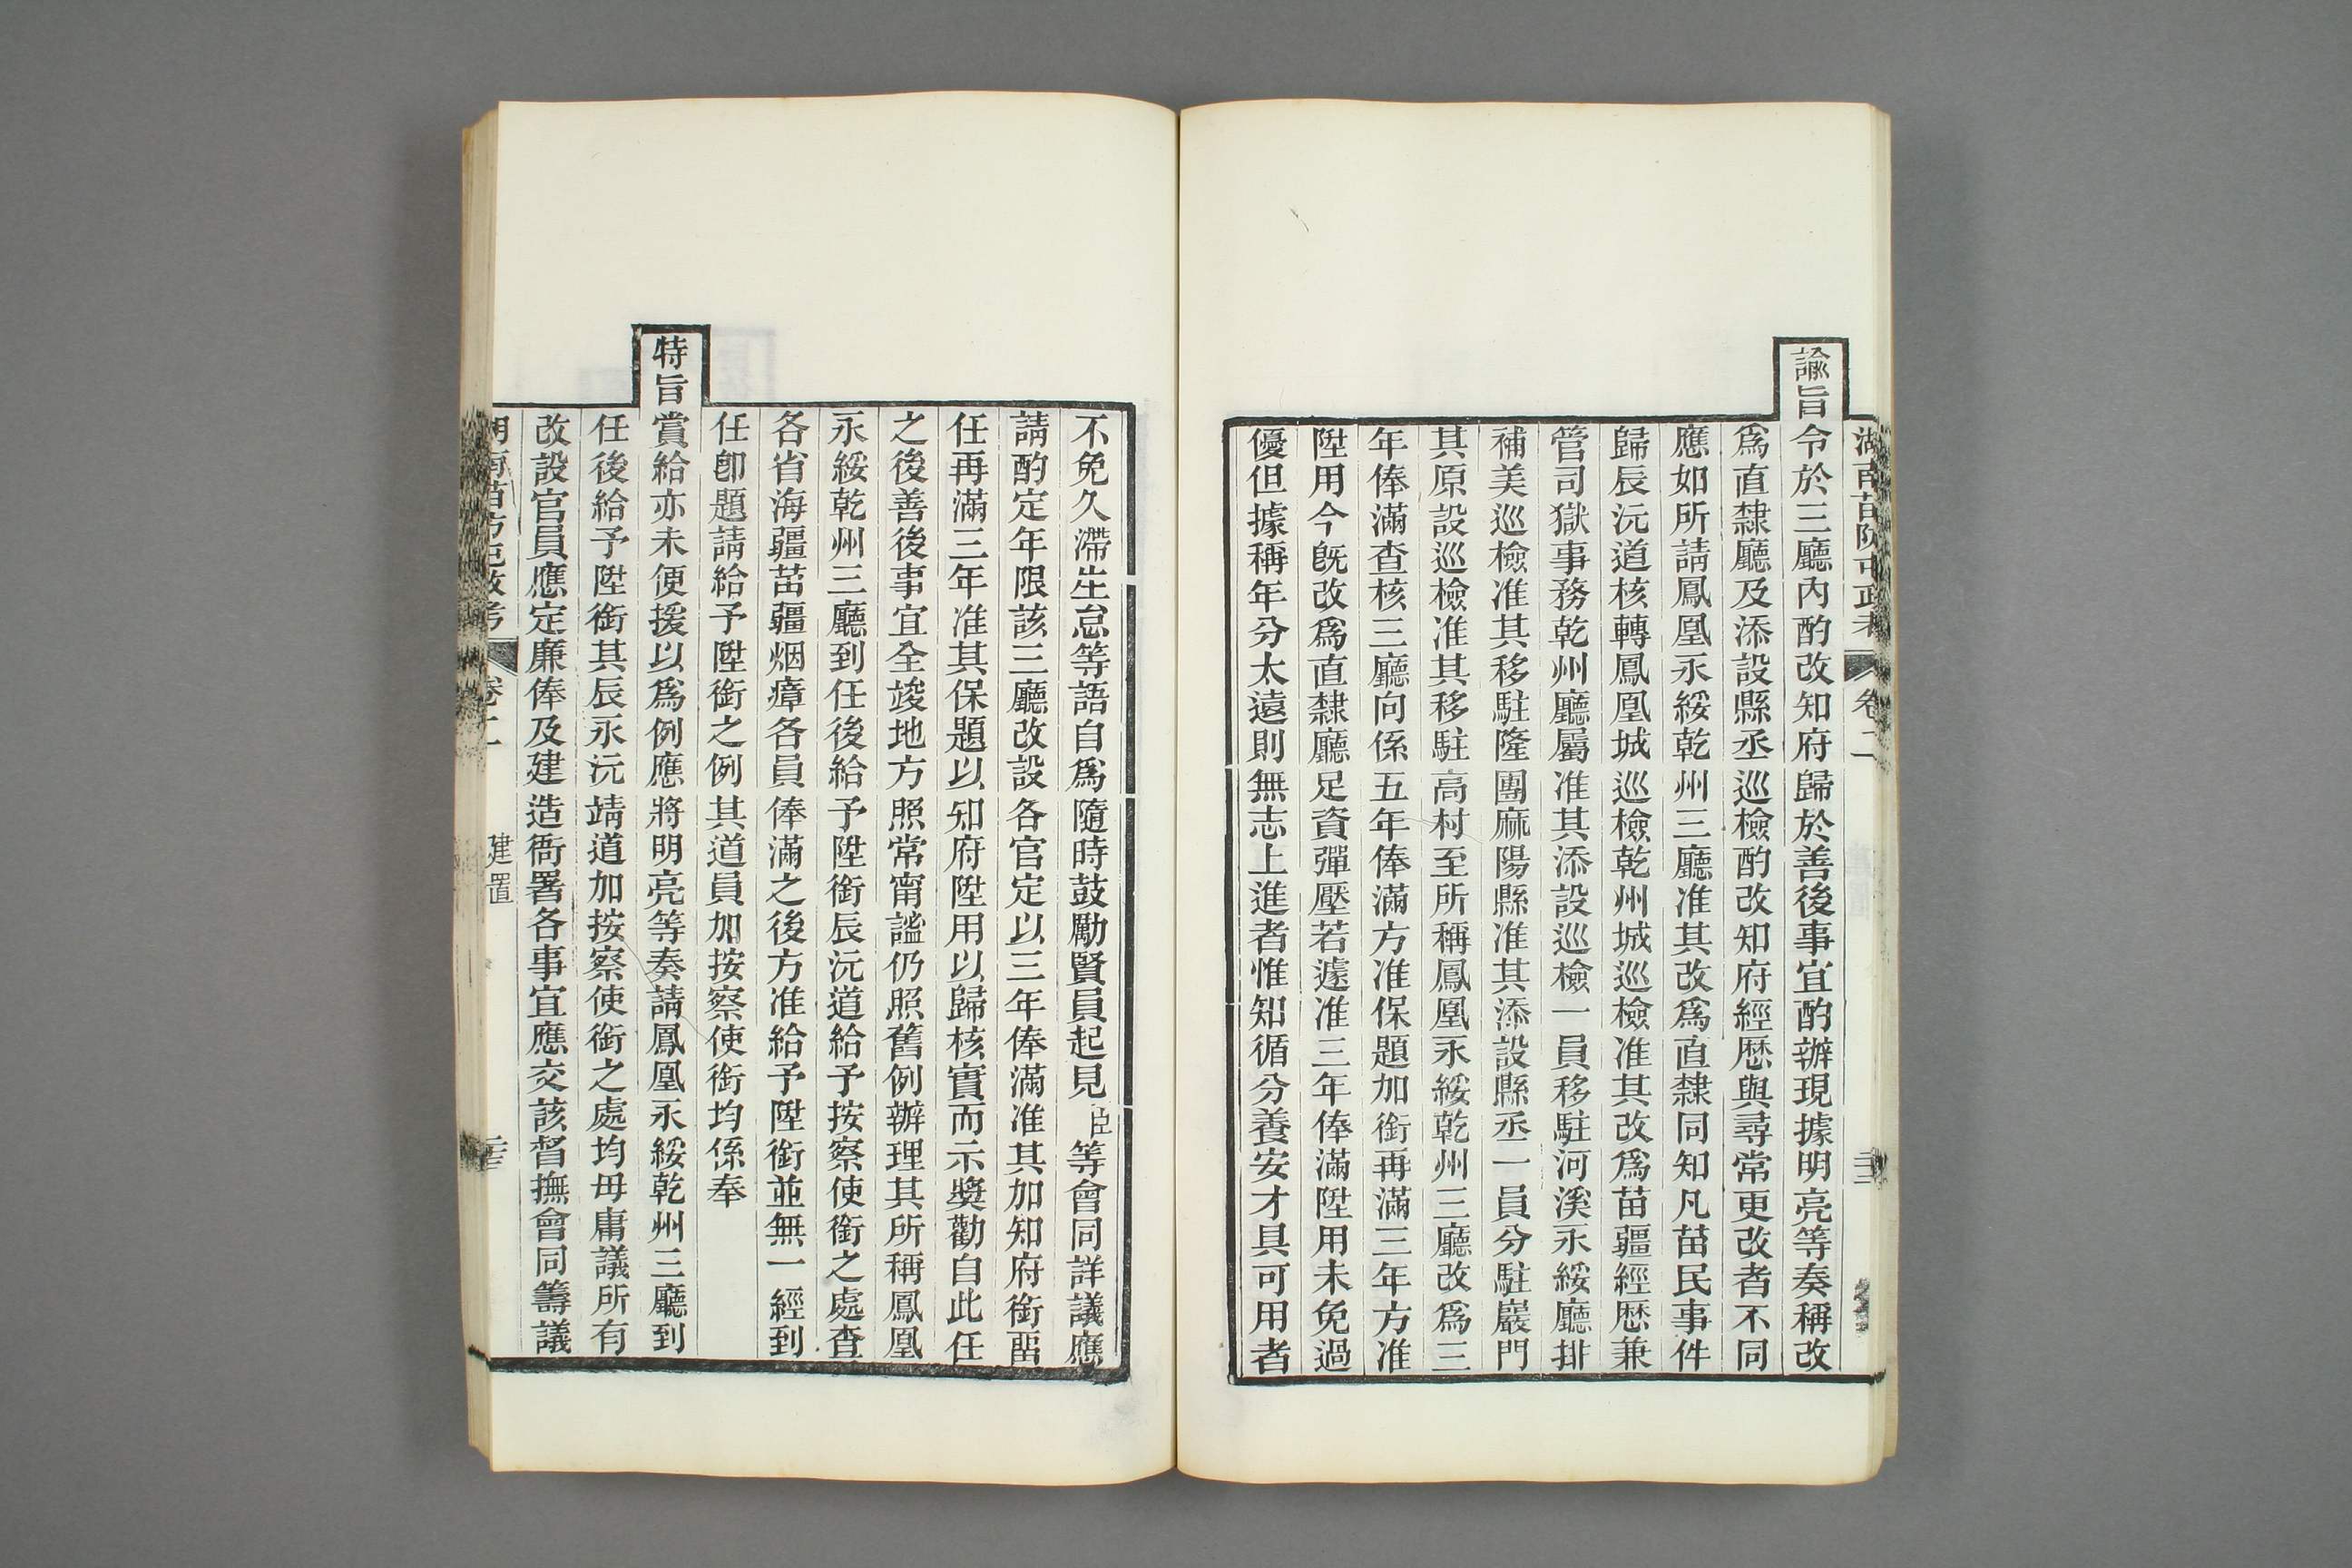 湖南苗防屯政考 卷二
諭旨令於三廳內酌改知府歸於善後事宜酌辦現據明亮等奏稱改
爲直隸廳及添設縣丞巡檢酌改知府經歷與尋常更改者不同
應如所請鳳凰永綏乾州三廳准其改爲直隸同知凡苗民事件
歸辰沅道核轉鳳凰城巡檢乾州城巡檢准其改爲苗疆經歷兼
管司獄事務乾州廳屬准其添設巡檢一員移駐河溪永綏廳排
補美巡檢准其移駐隆團麻陽縣准其添設縣丞一員分駐巖門
其原設巡檢准其移駐高村至所稱鳳凰永綏乾州三廳改爲三
年俸滿查核三廳向係五年俸滿方准保題加銜再滿三年方准
陞用今旣改爲直隸廳足資彈壓若遽准三年俸滿陞用未免過
優但據稱年分太遠則無志上進者惟知循分養安才具可用者
不免久滯生怠等語自爲隨時鼓勵賢員起見臣等會同詳議應
請酌定年限該三廳改設各官定以三年俸滿准其加知府銜畱
任再滿三年准其保題以知府陞用以歸核實而示獎勸自此任
之後善後事宜全竣地方照常甯謐仍照舊例辦理其所稱鳳凰
永綏乾州三廳到任後給予陞銜辰沅道給予按察使銜之處查
各省海疆苗疆烟瘴各員俸滿之後方准給予陞銜並無一經到
任卽題請給予陞銜之例其道員加按察使銜均係奉
特旨賞給亦未便援以爲例應將明亮等奏請鳳凰永綏乾州三廳到
任後給予陞銜其辰永沅靖道加按察使銜之處均毋庸議所有
改設官員應定廉俸及建造衙署各事宜應交該督撫會同籌議
湖南苗防屯政考 卷二 建置